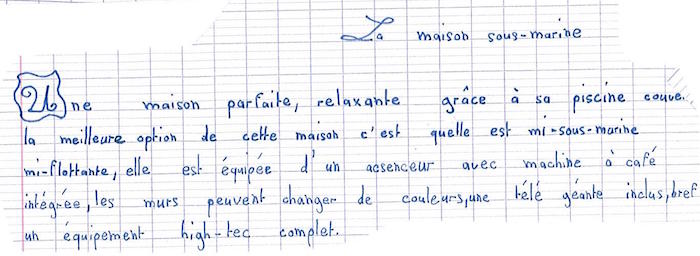 La maison sous-marine
Une maison parfaite, relaxante grâce à sa piscine couve.
la meilleure option de cette maison c'est quelle est mi-sous-marine
mi-flottante, elle est équipée d'un acsenceur avec machine à café
intégrée, les murs peuvent changer de couleurs, une télé géante inclus, bref
un équipement high-tec complet.